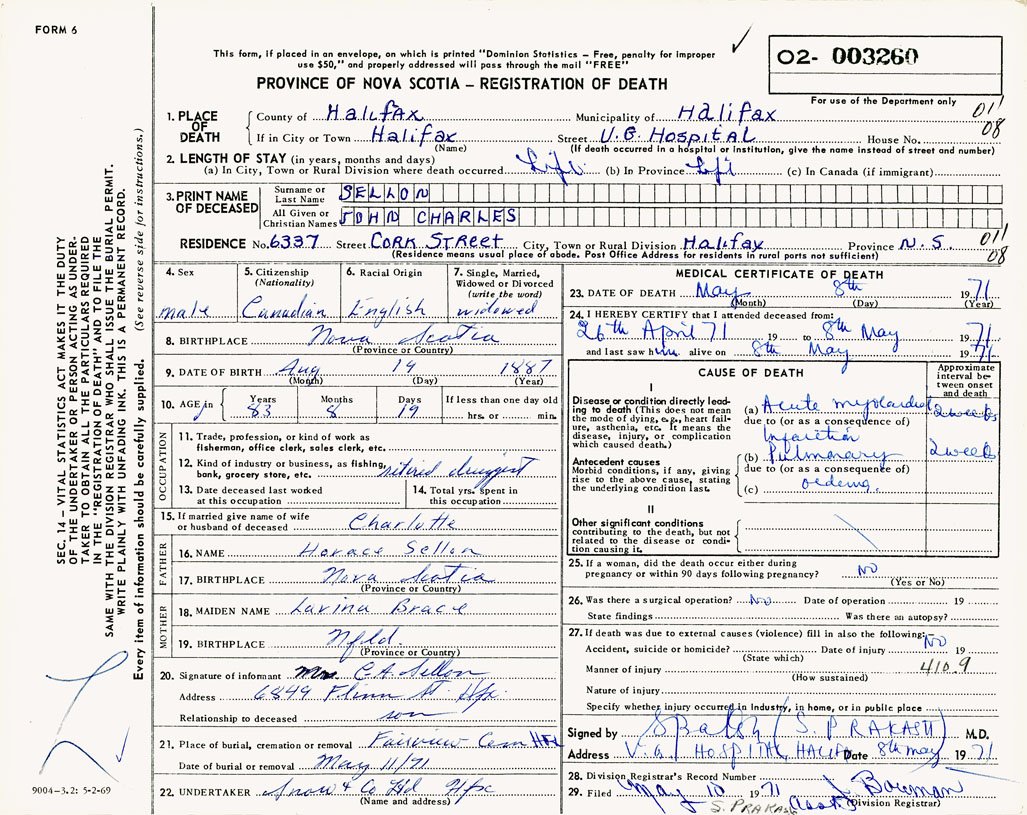 FORM 6
This form, if placed in an envelope, on which is printed "Dominion Statistics – Free, penalty for improper
use $50," and properly addressed will pass through the mail "FREE"
PROVINCE OF NOVA SCOTIA – REGISTRATION OF DEATH
02- 003260
For use of the Department only
1. PLACE OF DEATH
County of Halifax Municipality of Halifax 011
If in City or Town Halifax Street V.G. Hospital House No. 08
(Name) (If death occurred in a hospital or institution, give the name instead of street and number)
2. LENGTH OF STAY (in years, months and days)
(a) In City, Town or Rural Division where death occurred Life (b) In Province Life (c) In Canada (if immigrant)
3. PRINT NAME OF DECEASED
Surname or Last Name SELLON
All Given or Christian Names JOHN CHARLES
RESIDENCE No. 6337 Street Cork Street City, Town or Rural Division Halifax Province N.S. 011
(Residence means usual place of abode. Post Office Address for residents in rural ports not sufficient) 08
4. Sex
male
5. Citizenship (Nationality)
Canadian
6. Racial Origin
English
7. Single, Married, Widowed or Divorced (write the word)
widowed
8. BIRTHPLACE Nova Scotia
(Province or Country)
9. DATE OF BIRTH Aug 19 1887
(Month) (Day) (Year)
10. AGE in Years Months Days If less than one day old
83 8 19 hrs. or min.
OCCUPATION
11. Trade, profession, or kind of work as
fisherman, office clerk, sales clerk, etc.
12. Kind of industry or business, as fishing,
bank, grocery store, etc. retired druggist
13. Date deceased last worked
at this occupation
14. Total yrs. spent in
this occupation
15. If married give name of wife
or husband of deceased Charlotte
FATHER
16. NAME Horace Sellon
17. BIRTHPLACE Nova Scotia
(Province or Country)
MOTHER
18. MAIDEN NAME Lavina Brace
19. BIRTHPLACE Nfld.
(Province or Country)
20. Signature of informant Mrs C.A. Sellon
Address 6849 Flinn St Hfx.
Relationship to deceased son
21. Place of burial, cremation or removal Fairview Cem Hfx
Date of burial or removal May 11/71
22. UNDERTAKER Snow & Co Ltd Hfx
(Name and address)
MEDICAL CERTIFICATE OF DEATH
23. DATE OF DEATH May 8th 1971
(Month) (Day) (Year)
24. I HEREBY CERTIFY that I attended deceased from:
26th April 71 19 to 8th May 1971
and last saw him alive on 8th May 1971
CAUSE OF DEATH
Approximate interval between onset and death
I
Disease or condition directly leading to death (This does not
mean the mode of dying, e.g., heart failure, asthenia, etc. It means the
disease, injury, or complication
which caused death.)
(a) Acute myocardial 2 weeks
due to (or as a consequence of)
Infarction
Antecedent causes
Morbid conditions, if any, giving
rise to the above cause, stating
the underlying condition last.
(b) Pulmonary 2 weeks
due to (or as a consequence of)
(c) oedema.
II
Other significant conditions
contributing to the death, but not
related to the disease or condition
causing it.
25. If a woman, did the death occur either during
pregnancy or within 90 days following pregnancy? NO
(Yes or No)
26. Was there a surgical operation? No Date of operation 19
State findings Was there an autopsy?
27. If death was due to external causes (violence) fill in also the following:–
Accident, suicide or homicide? Date of injury No 19
(State which)
Manner of injury 410.9
(How sustained)
Nature of injury
Specify whether injury occurred in industry, in home, or in public place
Signed by (S. PRAKASH) M.D.
Address V.G. HOSPITAL, HALIFAX Date 8th May 1971
28. Division Registrar's Record Number
29. Filed May 10 1971 J Bowman
S. PRAKASH Asst. (Division Registrar)
SEC. 14 – VITAL STATISTICS ACT MAKES IT THE DUTY
OF THE UNDERTAKER OR PERSON ACTING AS UNDER-
TAKER TO OBTAIN ALL THE PARTICULARS REQUIRED
IN THE "REGISTRATION OF DEATH" AND TO FILE THE
SAME WITH THE DIVISION REGISTRAR WHO SHALL ISSUE THE BURIAL PERMIT.
WRITE PLAINLY WITH UNFADING INK. THIS IS A PERMANENT RECORD.
Every item of information should be carefully supplied. (See reverse side for instructions.)
9004-3.2: 5-2-69